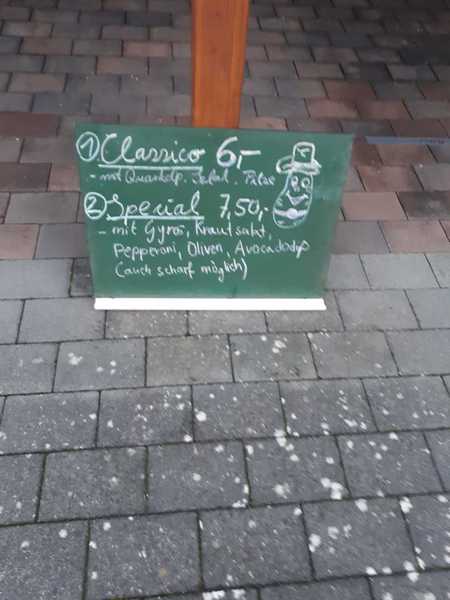 ① Classico 6,-
- mit Quarkdip, Salat,
② Special 7,50,-
- mit Gyros, Krautsalat,
Pepperoni, Oliven, Avocadodip
(auch scharf möglich)